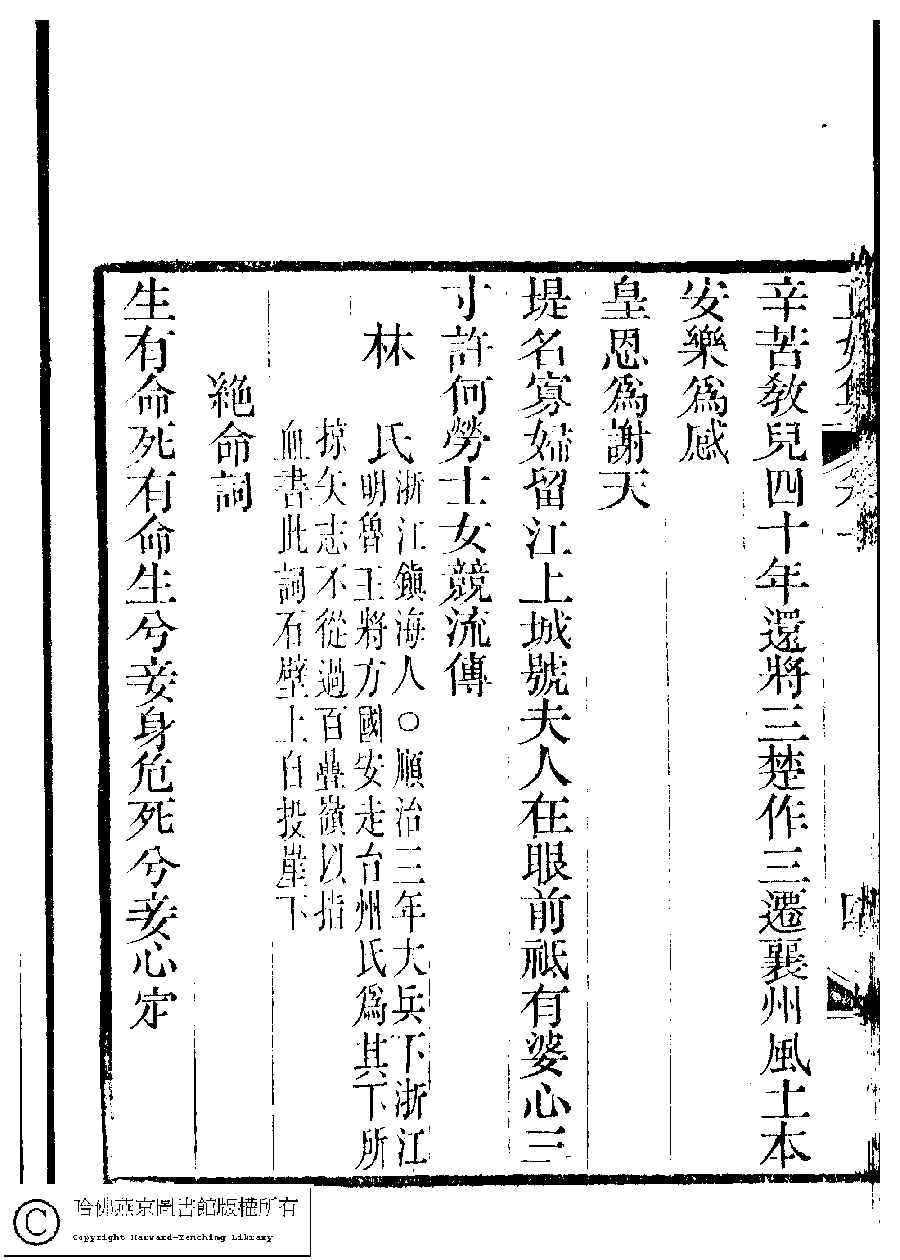 正始集 卷一 四
辛苦敎兒四十年還將三楚作三遷襄州風土本
安樂爲感
皇恩爲謝天
堤名寡婦留江上城號夫人在眼前祗有婆心三
寸許何勞士女競流傳
林氏
浙江鎮海人○順治三年大兵下浙江
明魯王將方國安走台州氏爲其下所
掠矢志不從過百疊嶺以指
血書此詞石壁上自投崖下
絕命詞
生有命死有命生兮妾身危死兮妾心定
哈佛燕京圖書館版權所有
Copyright Harvard-Yenching Library